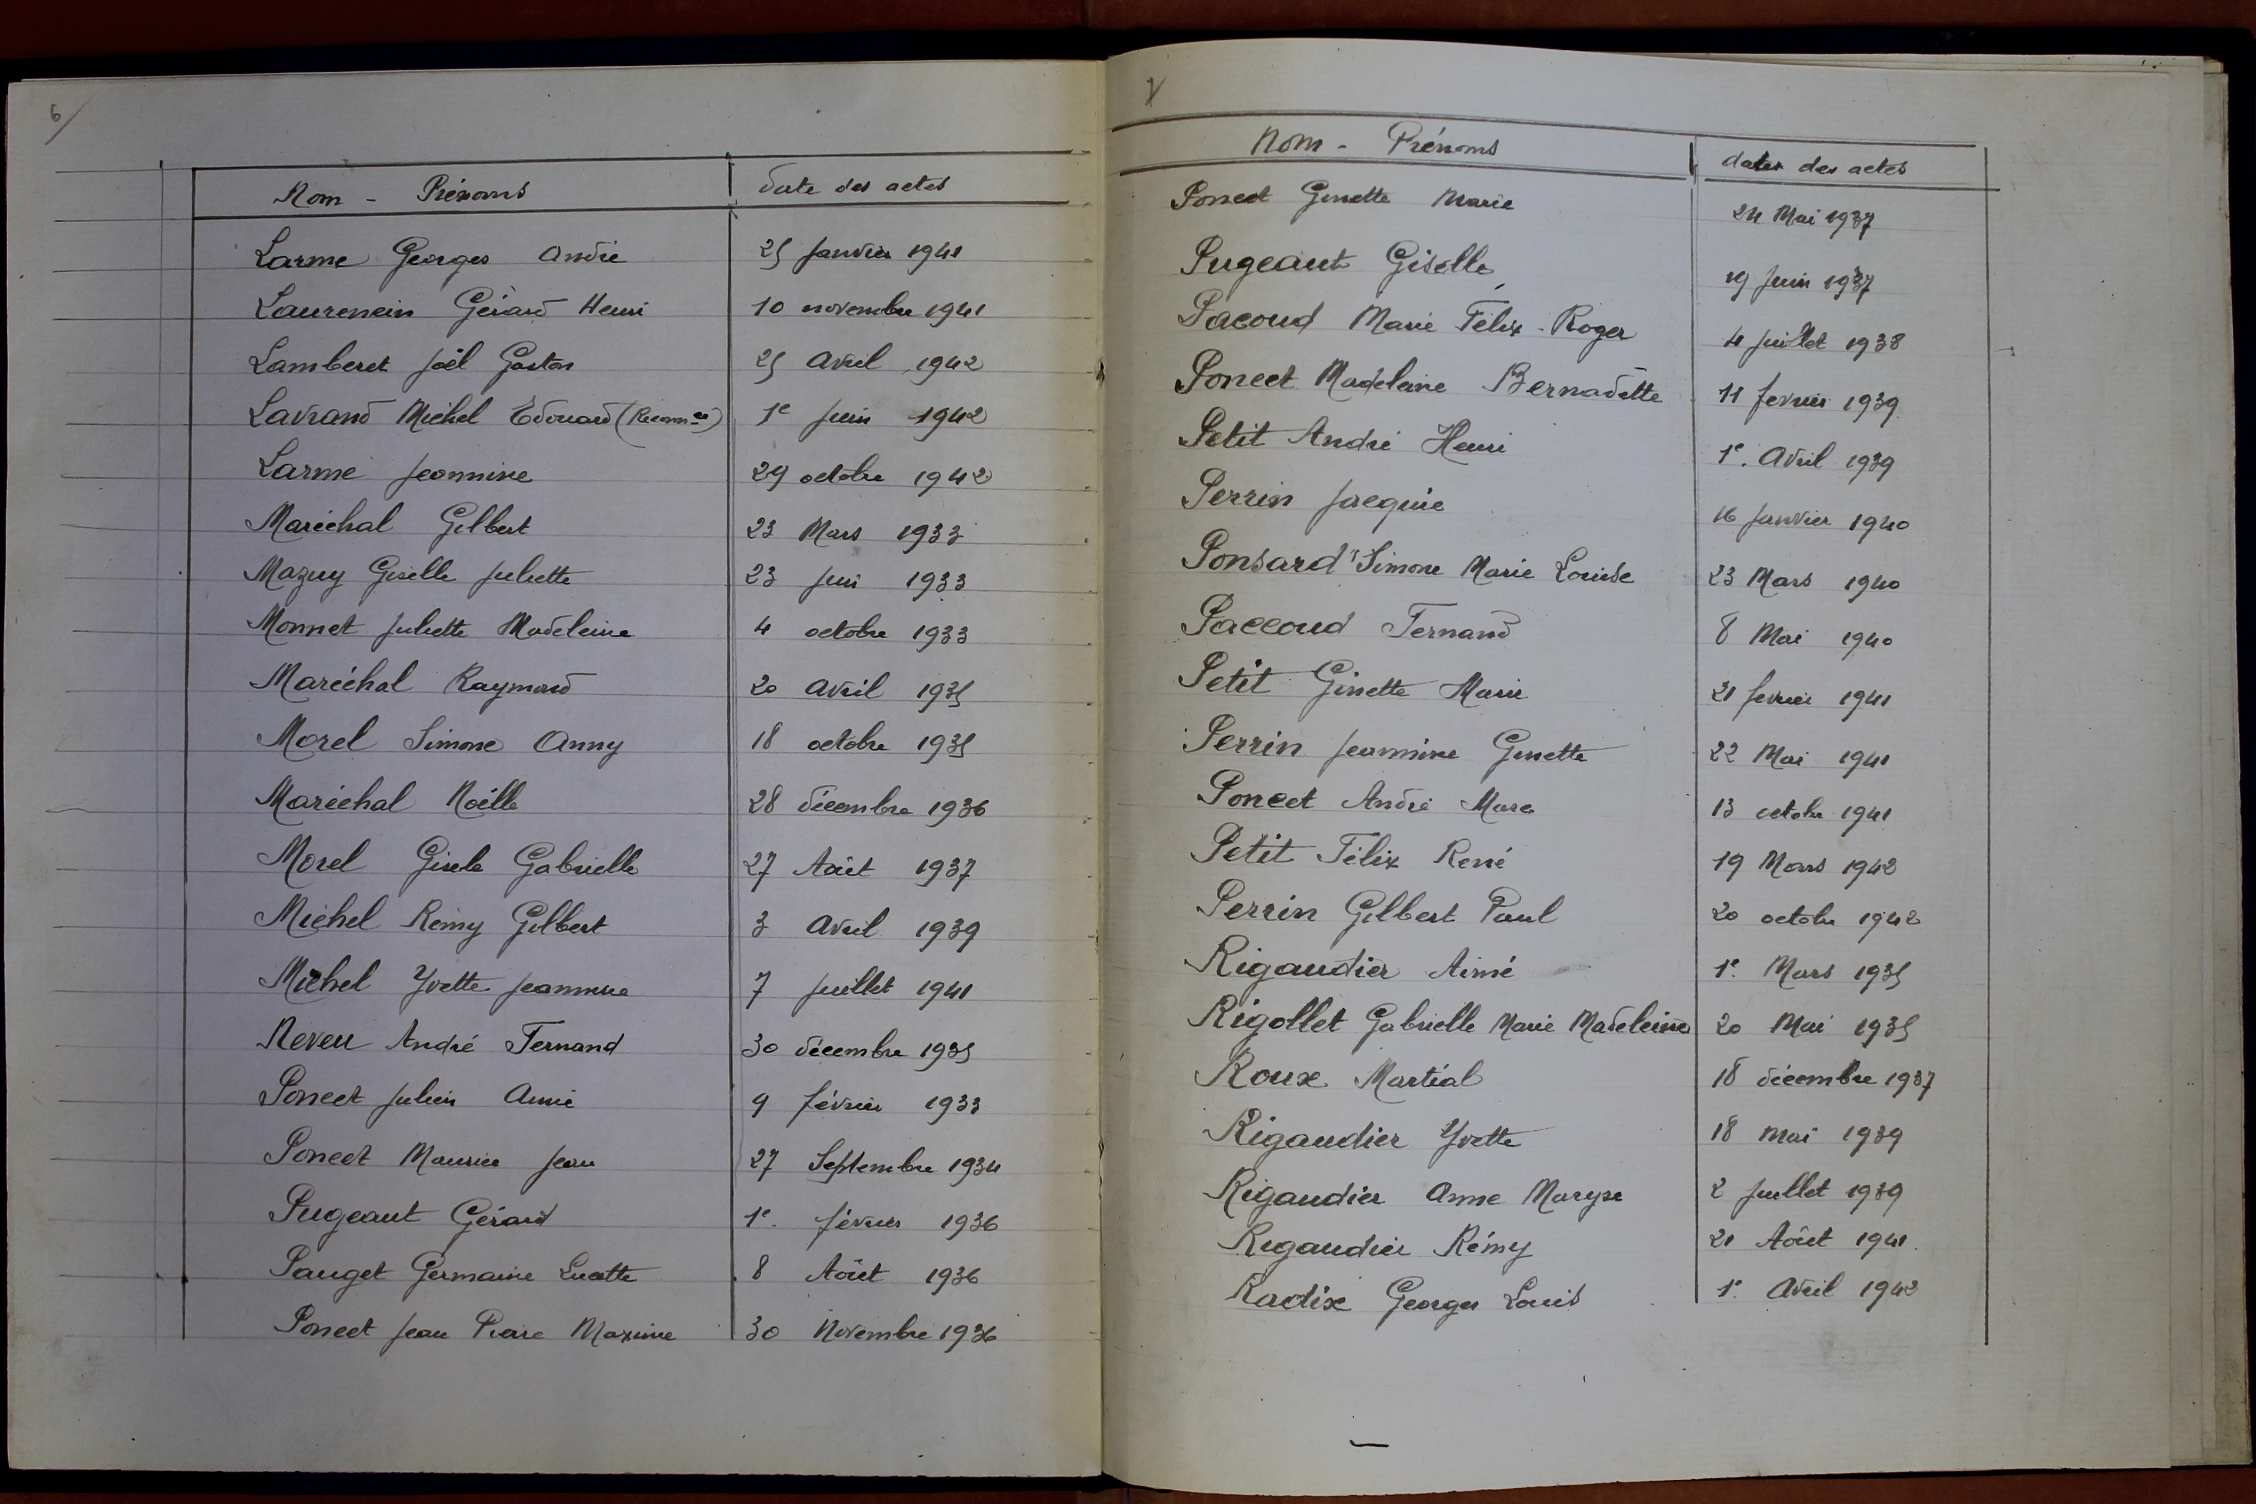 6/
Nom - Prénoms date des actes
Larme Georges André 25 janvier 1941
Laurencin Gérard Henri 10 novembre 1941
Lamberet Joël Gaston 25 Avril 1942
Lavrand Michel Edouard (Reconn ce) 1e juin 1942
Larme Jeannine 29 octobre 1942
Maréchal Gilbert 23 Mars 1933
Mazuy Giselle Juliette 23 juin 1933
Monnet Juliette Madeleine 4 octobre 1933
Maréchal Raymond 20 avril 1935
Morel Simone Anny 18 octobre 1935
Maréchal Noëlle 28 décembre 1936
Morel Gisele Gabrielle 27 Août 1937
Michel Rémy Gilbert 3 Avril 1939
Michel Yvette Jeannine 7 juillet 1941
Neveu André Fernand 30 décembre 1935
Poncet Julien Aimé 9 février 1933
Poncet Maurice Jean 27 Septembre 1934
Pugeaut Gérard 1e février 1936
Pauget Germaine Lucette 8 Août 1936
Poncet Jean Pierre Maxime 30 Novembre 1936
7/
Nom - Prénoms dates des actes
Poncet Ginette Marie 24 Mai 1937
Pugeaut Giselle 19 juin 1937
Pacoud Marie Félix - Roger 4 juillet 1938
Poncet Madeleine Bernadette 11 fevrier 1939
Petit André Henri 1e. Avril 1939
Perrin Jacquie 16 Janvier 1940
Ponsard Simone Marie Louise 23 Mars 1940
Paccoud Fernand 8 Mai 1940
Petit Ginette Marie 21 fevrier 1941
Perrin Jeannine Ginette 22 Mai 1941
Poncet André Marc 13 octobre 1941
Petit Félix René 19 Mars 1942
Perrin Gilbert Paul 20 octobre 1942
Rigaudier Aimé 1e. Mars 1935
Rigollet Gabrielle Marie Madeleine 20 Mai 1935
Roux Martial 18 décembre 1937
Rigaudier Yvette 18 mai 1939
Rigaudier Anne Maryse 2 juillet 1939
Rigaudier Rémy 21 Août 1941
Radix Georges Louis 1e. Avril 1942